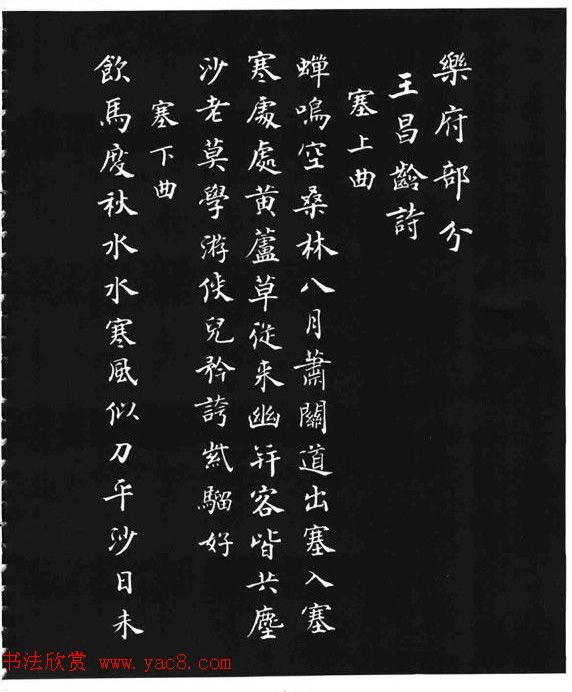 樂府部分
王昌齡詩
塞上曲
蟬鳴空桑林八月蕭關道出塞入塞
寒處處黃蘆草從来幽并客皆共塵
沙老莫學游俠兒矜誇紫騮好
塞下曲
飲馬度秋水水寒風似刀平沙日未
书法欣赏 www.yac8.com